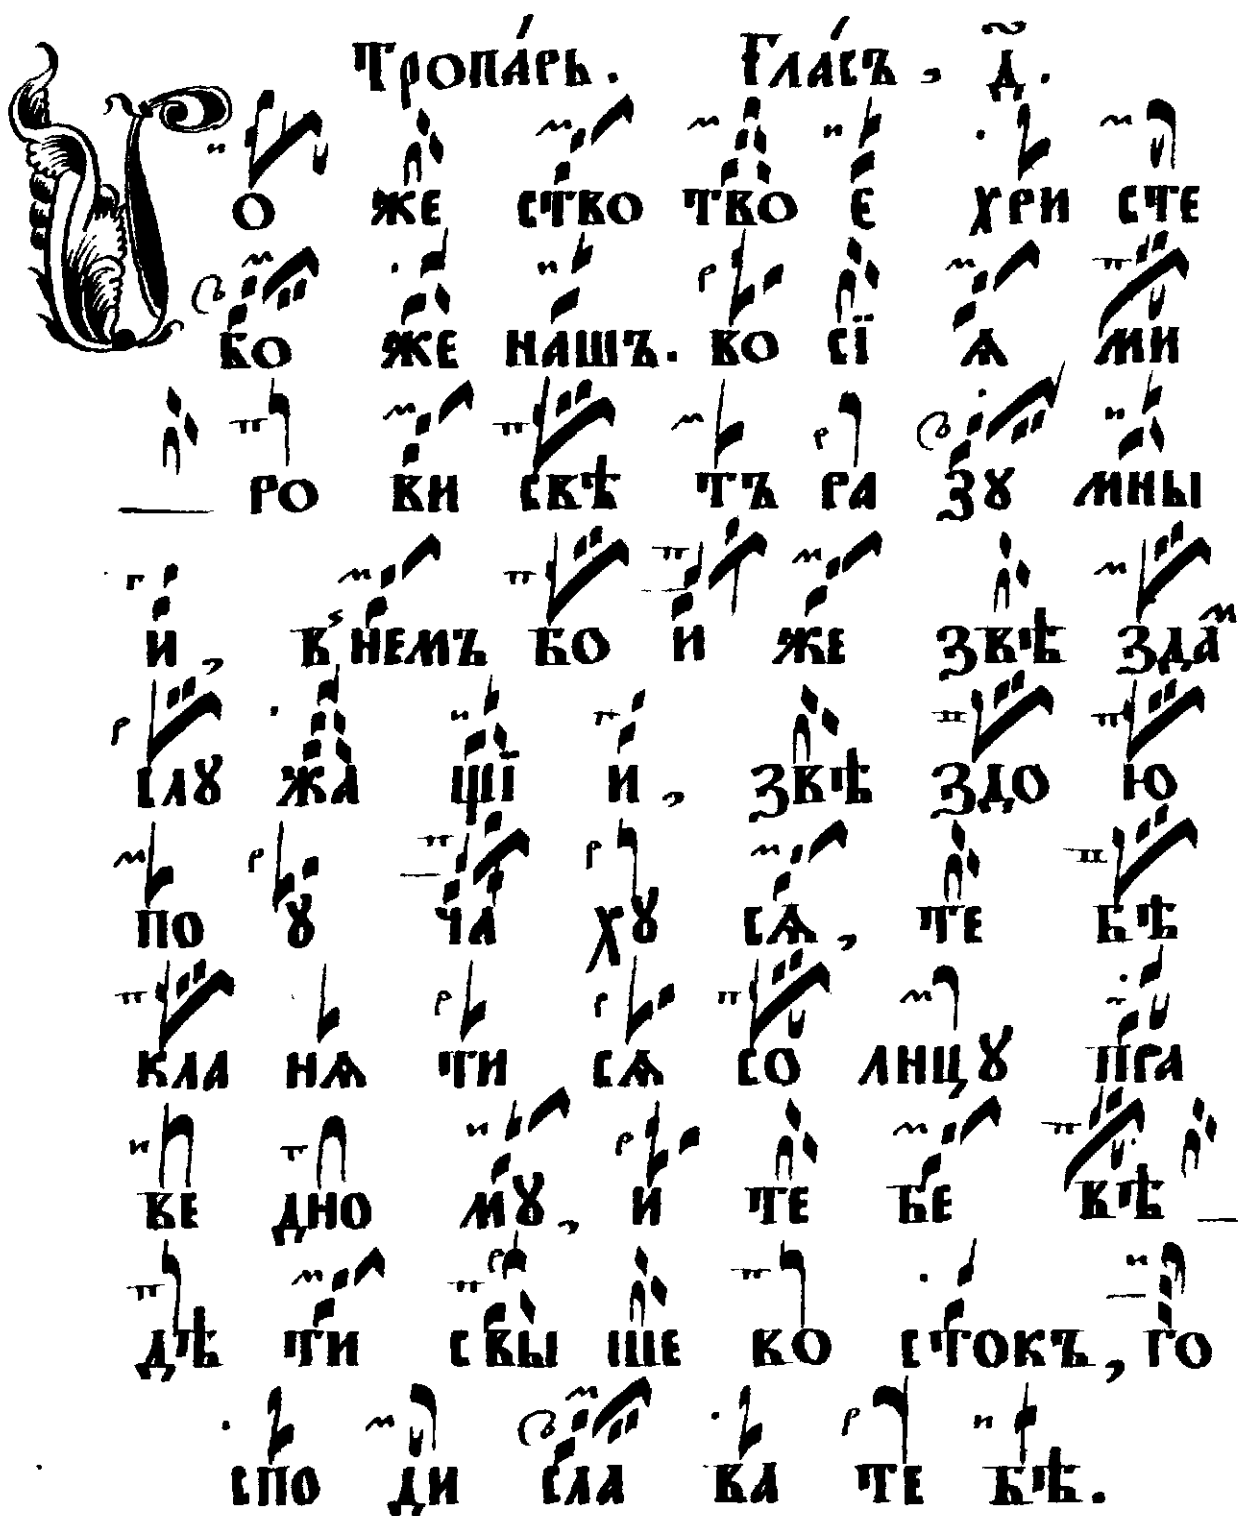 Тропа́рь. Гла́съ, д҃.
о же ство тво е хри сте
бо же нашъ. во сї ѧ ми
ро ви свѣ тъ ра зꙋ мны
и, в немъ бо и же звѣ зда м
слꙋ жа щї и, звѣ здо ю
по ꙋ ча хꙋ сѧ, те бѣ
кла нѧ ти сѧ со лнцꙋ пра
ве дно мꙋ, и те бе вѣ
дѣ ти свы ше во стокъ, го
спо ди сла ва те бѣ.